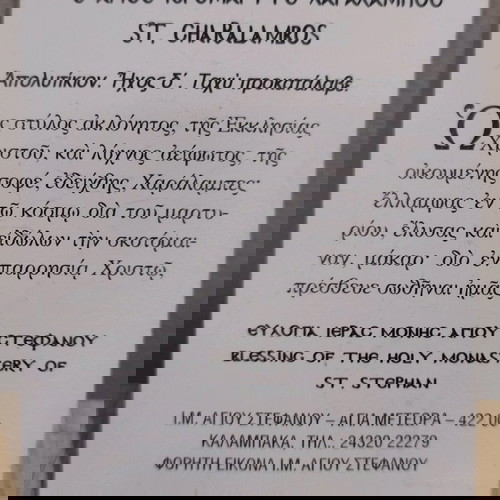 ST. CHARALAMBOS
Ἀπολυτίκιον. Ἦχος δ΄. Ταχὺ προκατάλαβε.
Ὡς στῦλος ἀκλόνητος, τῆς Ἐκκλησίας
Χριστοῦ, καὶ λύχνος ἀείφωτος τῆς
οἰκουμένης σοφέ, ἐδείχθης Χαράλαμπες·
ἔλαμψας ἐν τῷ κόσμῳ διὰ τοῦ μαρτυ-
ρίου, ἔλυσας καὶ εἰδώλων τὴν σκοτόμαι-
ναν, μάκαρ· διὸ ἐν παρρησίᾳ Χριστῷ,
πρέσβευε σωθῆναι ἡμᾶς.
ΕΥΛΟΓΙΑ ΙΕΡΑΣ ΜΟΝΗΣ ΑΓΙΟΥ
ΣΤΕΦΑΝΟΥ
BLESSING OF THE HOLY MONASTERY OF
ST. STEPHAN
Ι.Μ. ΑΓΙΟΥ ΣΤΕΦΑΝΟΥ – ΑΓΙΑ ΜΕΤΕΩΡΑ – 422 00
ΚΑΛΑΜΠΑΚΑ, ΤΗΛ. 24320-22279
ΦΟΡΗΤΗ ΕΙΚΟΝΑ Ι.Μ. ΑΓΙΟΥ ΣΤΕΦΑΝΟΥ